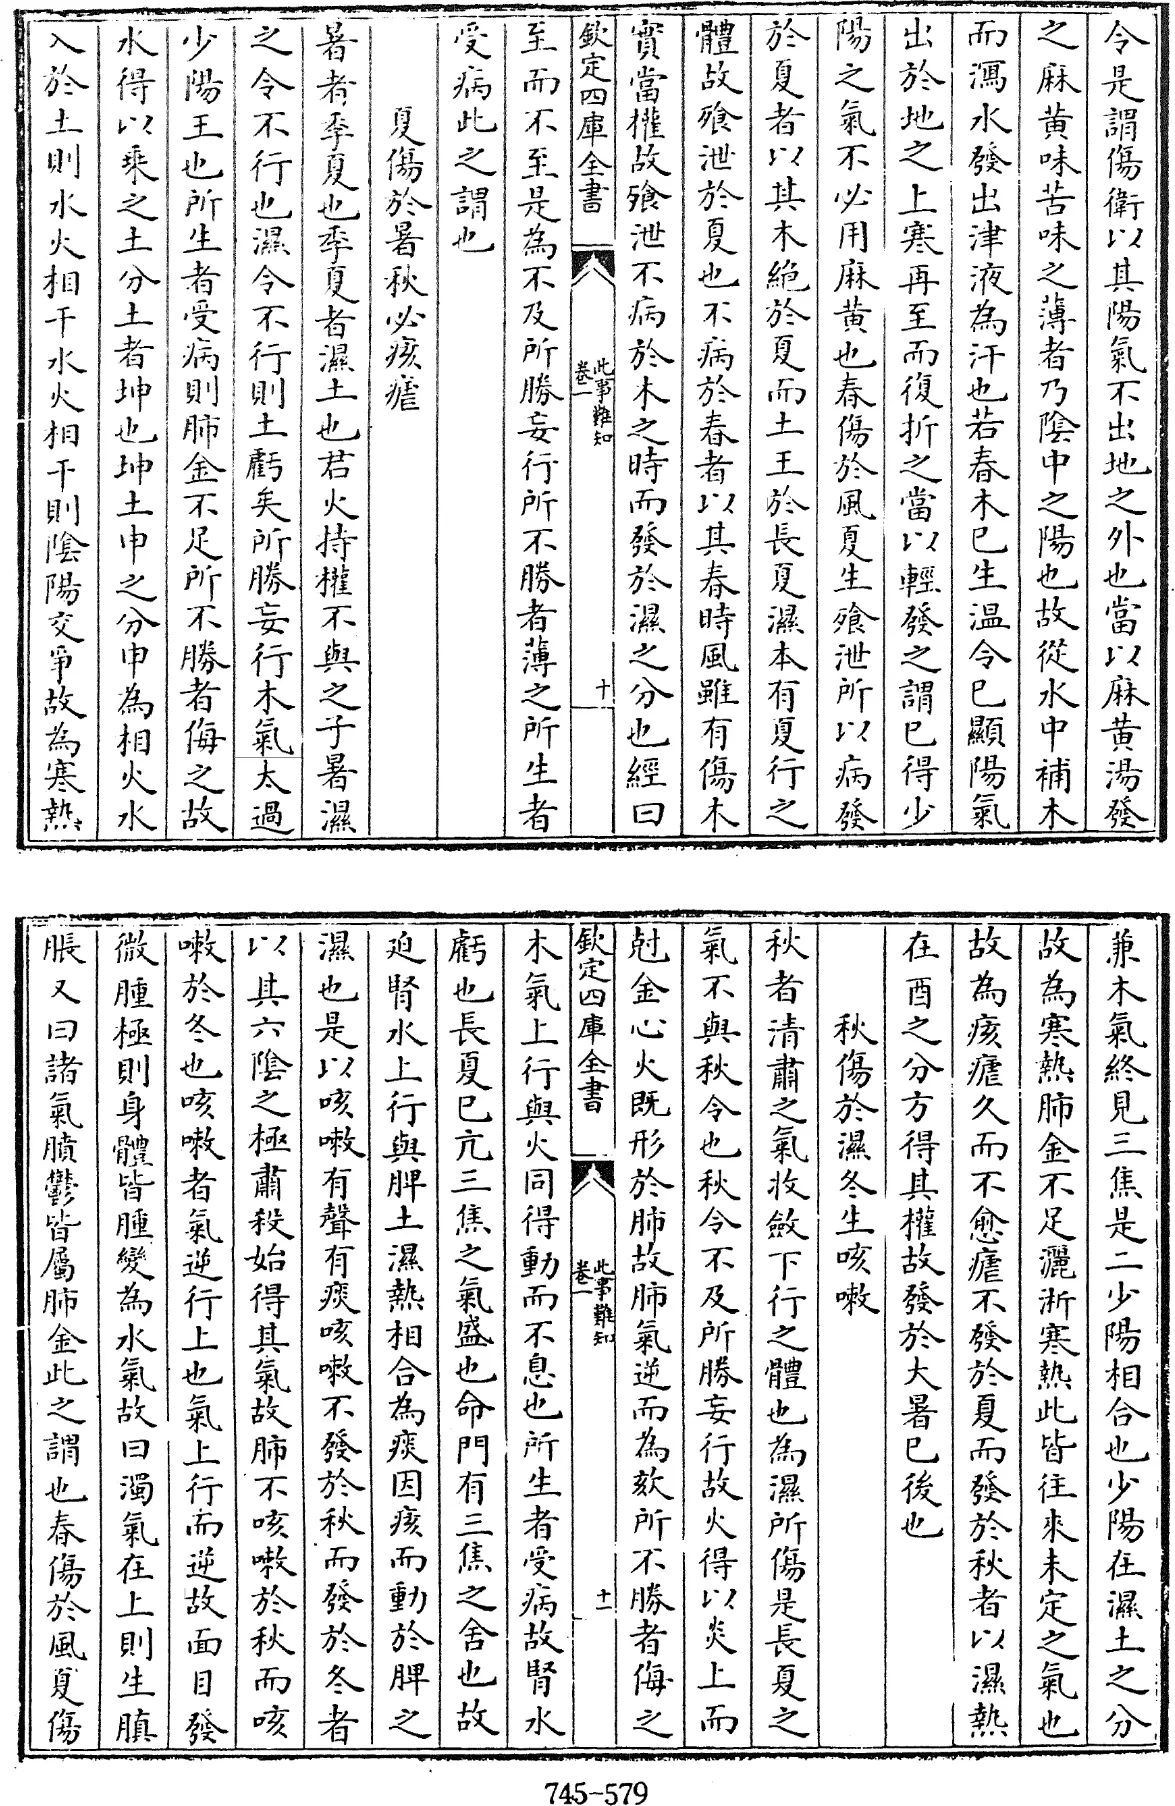 令是謂傷衛以其陽氣不出地之外也當以麻黄湯發
之麻黄味苦味之薄者乃隂中之陽也故從水中補木
而瀉水發出津液為汗也若春木已生温令已顯陽氣
出於地之上寒再至而復折之當以輕發之謂已得少
陽之氣不必用麻黄也春傷於風夏生飱泄所以病發
於夏者以其木絶於夏而土王於長夏濕本有夏行之
體故飱泄於夏也不病於春者以其春時風雖有傷木
實當權故飱泄不病於木之時而發於濕之分也經曰
欽定四庫全書
此事難知
卷一
十
至而不至是為不及所勝妄行所不勝者薄之所生者
受病此之謂也
夏傷於暑秋必痎瘧
暑者季夏也季夏者濕土也君火持權不與之子暑濕
之令不行也濕令不行則土虧矣所勝妄行木氣太過
少陽王也所生者受病則肺金不足所不勝者侮之故
水得以乘之土分土者坤也坤土申之分申為相火水
入於土則水火相干水火相干則隂陽交爭故為寒熱
兼木氣終見三焦是二少陽相合也少陽在濕土之分
故為寒熱肺金不足灑淅寒熱此皆往來未定之氣也
故為痎瘧久而不愈瘧不發於夏而發於秋者以濕熱
在酉之分方得其權故發於大暑已後也
秋傷於濕冬生咳嗽
秋者清肅之氣收斂下行之體也為濕所傷是長夏之
氣不與秋令也秋令不及所勝妄行故火得以炎上而
尅金心火既形於肺故肺氣逆而為欬所不勝者侮之
欽定四庫全書
此事難知
卷一
十一
木氣上行與火同得動而不息也所生者受病故腎水
虧也長夏已亢三焦之氣盛也命門有三焦之舍也故
迫腎水上行與脾土濕熱相合為痰因痎而動於脾之
濕也是以咳嗽有聲有痰咳嗽不發於秋而發於冬者
以其六隂之極肅殺始得其氣故肺不咳嗽於秋而咳
嗽於冬也咳嗽者氣逆行上也氣上行而逆故面目發
微腫極則身體皆腫變為水氣故曰濁氣在上則生䐜
脹又曰諸氣膹鬱皆屬肺金此之謂也春傷於風夏傷
745-579